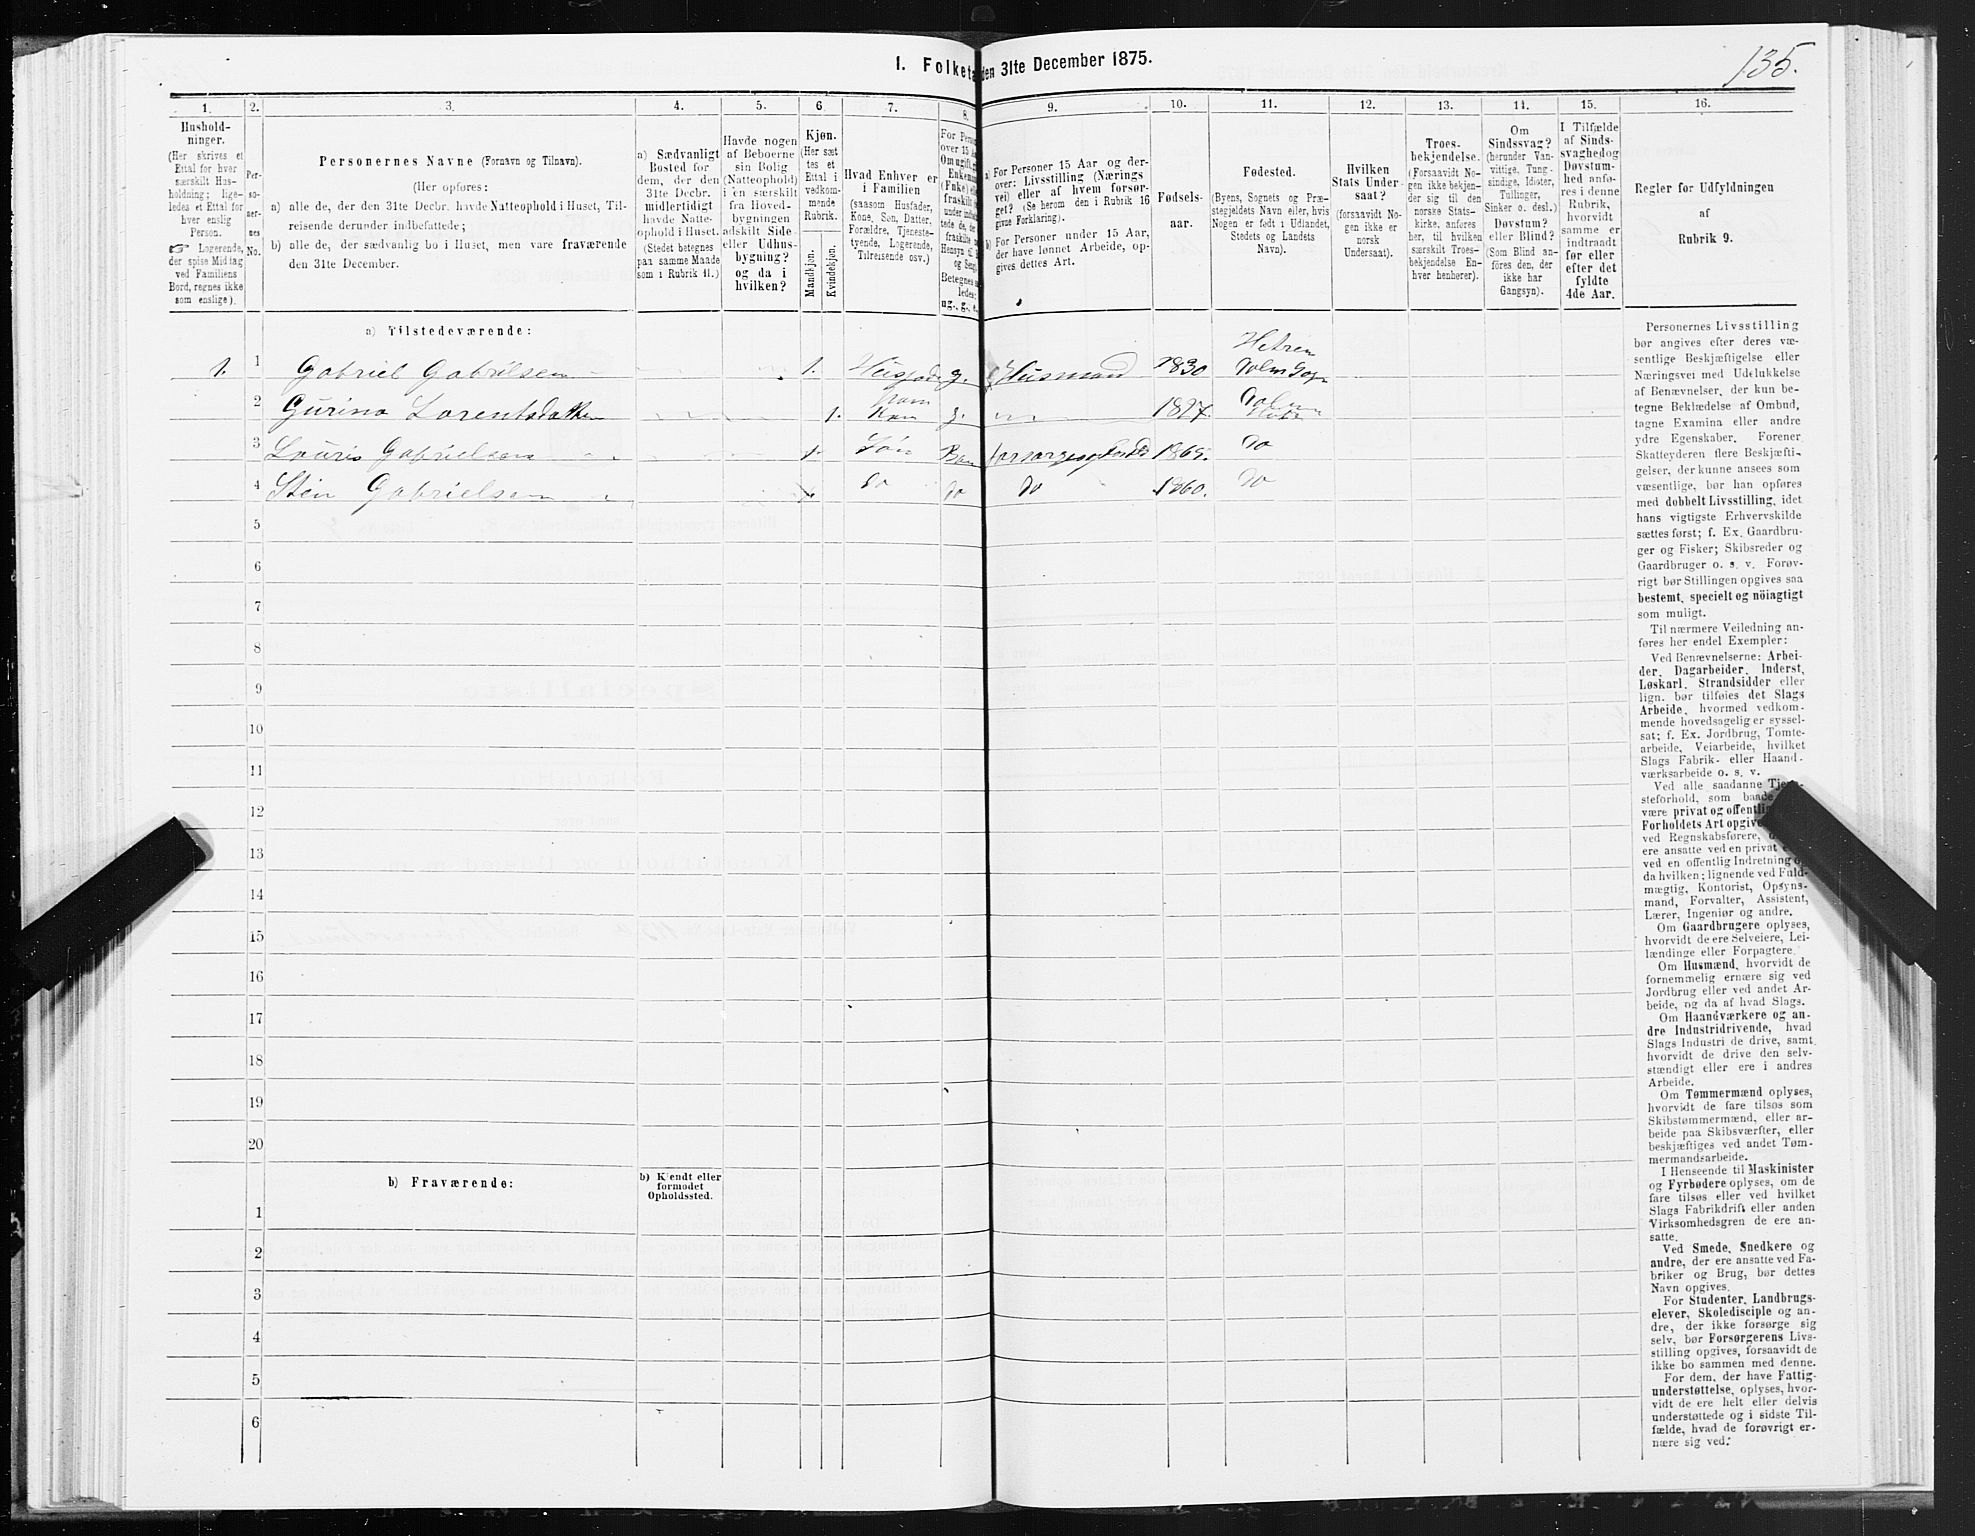 135.
1. Folketa den 31te December 1875.
1. 2. 3. 4. 5. 6 7. 8. 9. 10. 11. 12. 13. 14. 15. 16.
Hushold-
ninger.
(Her skrives et
Ettal for hver
særskilt Hus-
holdning; lige-
ledes et Ettal for
hver enslig
Person.
☞ Logerende,
der spise Middag
ved Familiens
Bord, regnes ikke
som enslige).
Per-
so-
ner-
nes
No.
Personernes Navne (Fornavn og Tilnavn).
(Her opføres:
a) alle de, der den 31te Decbr. havde Natteophold i Huset, Til-
reisende derunder indbefattede;
b) alle de, der sædvanlig bo i Huset, men vare fraværende
den 31te December.
a) Sædvanligt
Bosted for
dem, der den
31te Decbr.
midlertidigt
havde Natte-
ophold i Huset.
(Stedet betegnes
paa samme Maade
som i Rubrik 11.)
Havde nogen
af Beboerne
sin Bolig
(Natteophold)
i en særskilt
fra Hoved-
bygningen
adskilt Side-
eller Udhus-
bygning?
og da i
hvilken?
Kjøn.
(Her sæt
tes et
Ettal i
vedkom-
mende
Rubrik.
Mandkjøn.
Kvindekjøn.
Hvad Enhver er
i Familien
(saasom Husfader,
Kone, Søn, Datter,
Forældre, Tjeneste-
tyende, Logerende,
Tilreisende osv.)
For Perso
over 15 A
Om ugift, g
Enkema
(Enke) el
fraskilt
a) For Personer 15 Aar og der-
over: Livsstilling (Nærings
vei) eller af hvem forsør-
get? (Se herom den i Rubrik 16
givne Forklaring).
b) For Personer under 15 Aar,
der have lønnet Arbeide, op-
gives dettes Art.
Fødsels-
aar.
Fødested.
(Byens, Sognets og Præ-
stegjeldets Navn eller, hvis
Nogen er født i Udlandet,
Stedets og Landets
Navn).
Hvilken
Stats Under-
saat?
(forsaavidt No-
gen ikke er
norsk
Undersaat).
Troes-
bekjendelse.
(Forsaavidt No-
gen ikke bekjen-
der sig til den
norske Stats-
kirke, anføres
her, til hvilken
særskilt Troes-
bekjendelse En-
hver henhører).
Om
Sindssvag?
(herunder Van-
vittige, Tung-
sindige, Idioter,
Tullinger,
Sinker o. desl.)
Døvstum?
eller Blind?
(Som Blind an-
føres den, der
ikke har
Gangsyn).
I Tilfælde
af Sinds-
svaghed og
Døvstum-
hed anfø-
res i denne
Rubrik,
hvorvidt
samme er
indtraadt
før eller
efter det
fyldte
4de Aar.
Regler for Udfyldningen
af
Rubrik 9.
a) Tilstedeværende:
1. 1 Gabriel Gabrilsen 1. g. Husmand 1830
2 Gurina Lorentsdatter 1. Kon g. 1827.
3 Louris Gabrielsen 1. Søn 1865. do
4 Sten Gabrielsen 1. do do do 1860. do
5
6
7
8
9
10
11
12
13
14
15
16
17
18
19
20
b) Fraværende:
b) Kjendt eller
formodet
Opholdssted.
1
2
3
4
5
6
Personernes Livsstilling
bør angives efter deres væ-
sentlige Beskjæftigelse eller
Næringsvei med Udelukkelse
af Benævnelser, der kun be-
tegne Beklædelse af Ombud,
tagne Examina eller andre
ydre Egenskaber. Forener
Skatteyderen flere Beskjæfti-
gelser, der kunne ansees som
væsentlige, bør han opføres
med dobbelt Livsstilling, idet
hans vigtigste Erhvervskilde
sættes først; f. Ex. Gaardbru-
ger og Fisker; Skibsreder og
Gaardbruger o. s. v. Forøv-
rigt bør Stillingen opgives saa
bestemt, specielt og nöiagtigt
som muligt.
Til nærmere Veiledning an-
føres her endel Exempler:
Ved Benævnelserne: Arbei-
der, Dagarbeider, Inderst,
Løskarl, Strandsidder eller
lign. bør tilføies det Slags
Arbeide, hvormed vedkom-
mende hovedsagelig er syssel-
sat; f. Ex. Jordbrug, Tomte-
arbeide, Veiarbeide, hvilket
Slags Fabrik- eller Haand-
værksarbeide o. s. v.
Ved alle saadanne
steforhold, som
være privat og
Forholdets Art
ved Regnskabsførere,
ere ansatte ved en privat
ved en offentlig Indretning
da hvilken; lignende ved Fuld-
mægtig, Kontorist, Opsyns-
mand, Forvalter, Assistent,
Lærer, Ingeniør og andre.
Om Gaardbrugere oplyses,
hvorvidt de ere Selveiere, Lei-
lændinge eller Forpagtere.
Om Husmænd, hvorvidt de
fornemmelig ernære sig ved
Jordbrug eller ved andet Ar-
beide, og da af hvad Slags.
Om Haandværkere og an-
dre Industridrivende, hvad
Slags Industri de drive, samt
hvorvidt de drive den selv-
stændigt eller ere i andres
Arbeide.
Om Tømmermænd oplyses,
hvorvidt de fare tilsøs som
Skibstømmermænd, eller ar-
beide paa Skibsværfter, eller
beskjæftiges ved andet Tøm-
mermandsarbeide.
I Henseende til Maskinister
og Fyrbødere oplyses, om de
fare tilsøs eller ved hvilket
Slags Fabrikdrift eller anden
Virksomhedsgren de ere an-
satte.
Ved Smede, Snedkere og
andre, der ere ansatte ved Fa-
briker og Brug, bør dettes
Navn opgives.
For Studenter, Landbrugs-
elever, Skoledisciple og an-
dre, der ikke forsørge sig
selv, bør Forsørgerens Livs-
stilling opgives, forsaavidt de
ikke bo sammen med denne.
For dem, der have Fattig-
understøttelse, oplyses, hvor-
vidt de ere helt eller delvis
understøttede og i sidste Til-
fælde, hvad de forøvrigt er-
nære sig ved.